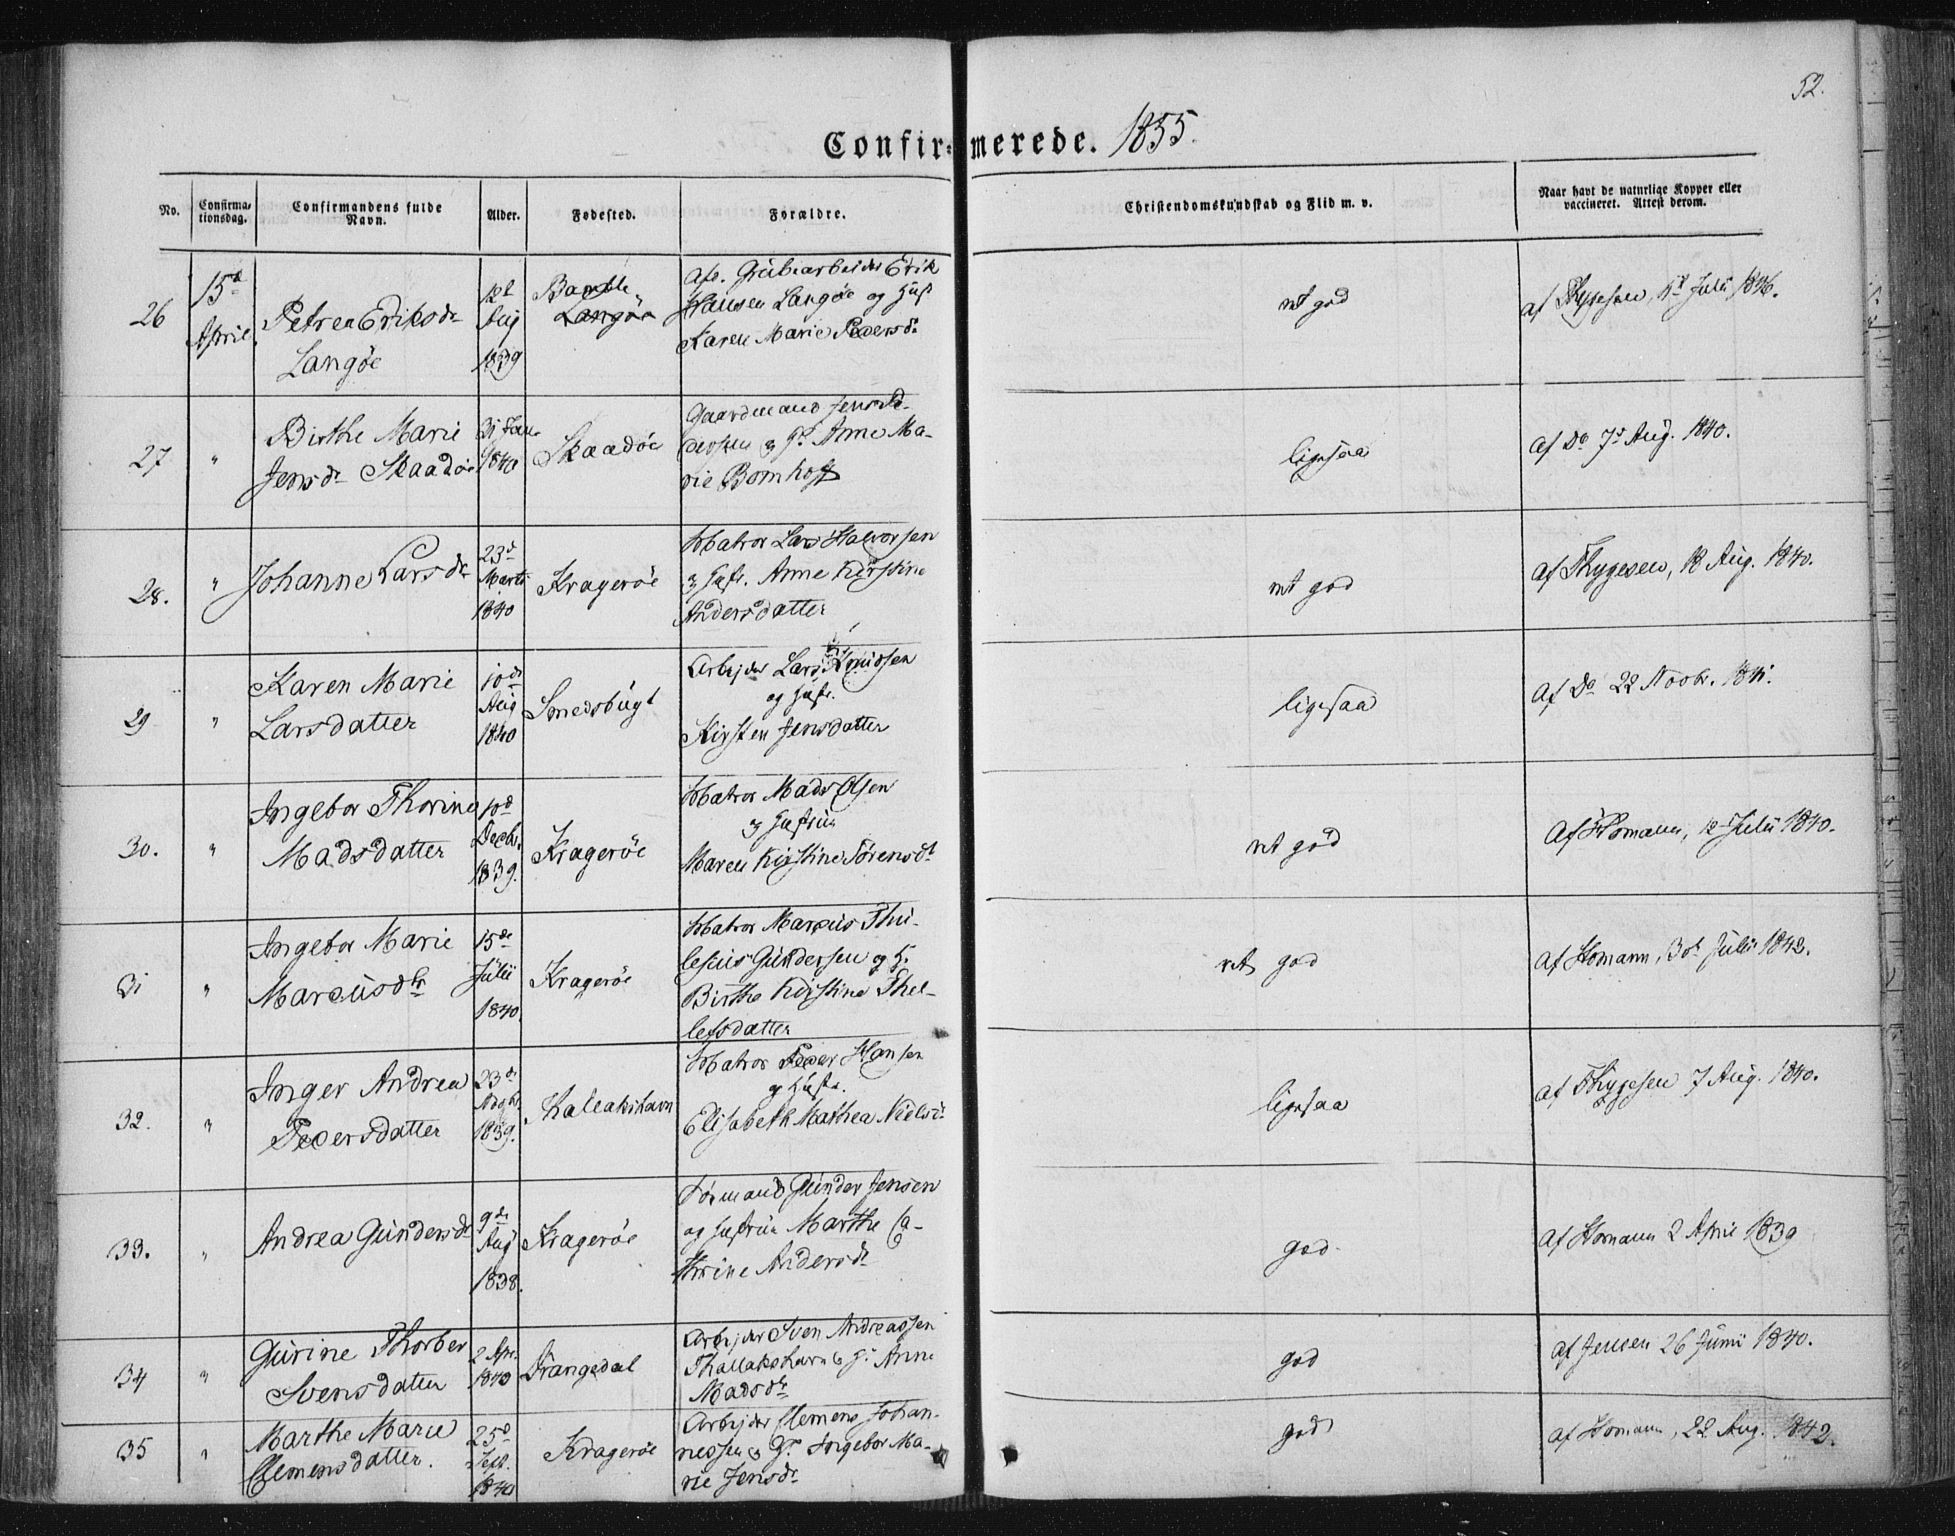 52.
Confirmerede. 1855.
No.
Confirmationsdag.
Confirmandens fulde Navn.
Alder.
Fødested.
Forældre.
Christendomskundskab og Flid m. v.
Naar havt de naturlige Kopper eller vaccineret. Attest derom.
26
15d April
Petrea Eriksdr
Langøe
12t Aug 1839
Bamble
Langöe
Afs. Grubearbeider Erik
Hansen Langøe og Hust
Karen Marie Pedersdr
ret god
af Thygesen, Juli 1846.
27
"
Birthe Marie
Jensdr Skaadøe
31 Jan 1840
Skaadøe
Gaardmand Jens Pe-
dersen & H. Anne Ma-
rie Bornhoft
ligesaa
af Do 7d Aug. 1840.
28.
"
Johanne Larsdr
23d Marts 1840
Kragerøe
Matros Lars Halvorsen
& Hust. Anne Kirstine
Andersdatter
ret god
af Thygesen, 18 Aug. 1840.
29
"
Karen Marie
Larsdatter
10de Aug 1840
Smedsbugt
Arbejder Lars Knudsen
og Hust.
Kirsten Jensdatter
ligesaa
af Do 22 Novbr. 1841.
30.
"
Ingebor Thorine
Madsdatter
10d Decbr. 1839.
Kragerøe
Matros Mads Olsen
& Hustrue
Maren Kirstine Sörensdt
ret god
af Homann, 12 Juli 1840.
31
"
Ingebor Marie
Marcusdtr
15de Juli 1840.
Kragerøe
Matros Marcus Thu-
lesius Gundersen og H.
Birthe Kirstine Thel-
lefsdatter
ret god
af Homann, 30t Juli 1842.
32.
"
Inger Andrea
Pedersdatter
23de Novbr 1839.
Kalakshavn
Matros Peder Hansen
og Hustr.
Elisabeth Mathea Nielsd.
ligesaa
af Thygesen 7 Aug. 1840.
33.
"
Andrea Gundersdr
9de Aug 1838.
Kragerøe
Sømand Gunder Jensen
og Hustrue Marthe Ca-
thrine Andersdr
god
af Homann 2 April 1839
34
"
Gurine Thorber
Svensdatter
2 Apr. 1840
Drangedal
Arbejder Sven Andreassen
Thallakshavn & H. Anne
Madsdtr
god
af Jensen 26 Juni 1840.
35
"
Marthe Marie
Clemensdatter.
25d Sept. 1840
Kragerøe
Arbejder Clemens Johan-
nessen & H. Ingebor Ma-
rie Jensdr
god
af Homann, 22 Aug. 1842.